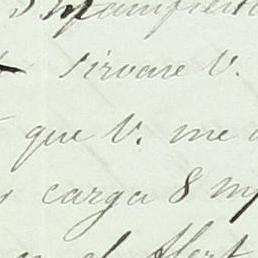 Manifiesto
Sirvase V.
que V. me
carga 8 m
en el flert